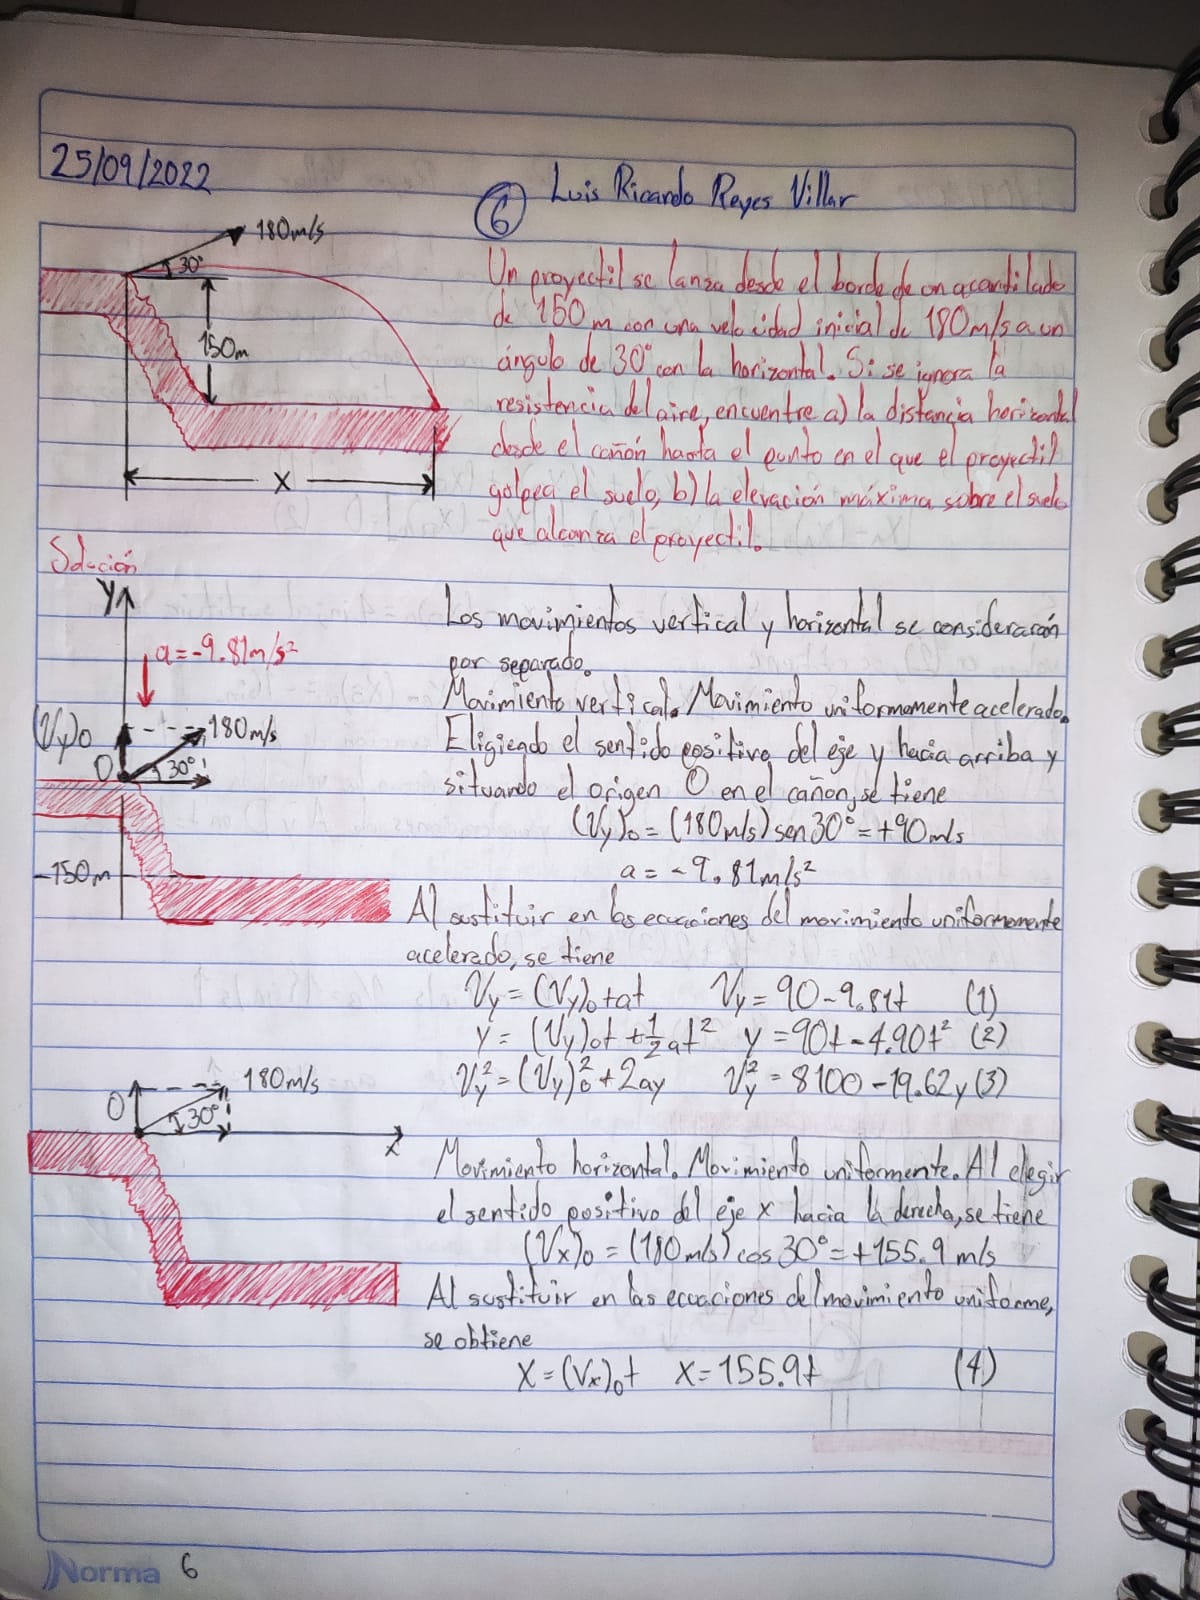 25/09/2022
Luis Ricardo Reyes Villar
6
180m/s
30°
150m
X
Un proyectil se lanza desde el borde de un acantilado
de 150 m con una velocidad inicial de 180m/s a un
ángulo de 30° con la horizontal. Si se ignora la
resistencia del aire, encuentre a) la distancia horizontal
desde el cañón hasta el punto en el que el proyectil
golpea el suelo, b) la elevación máxima sobre el suelo
que alcanza el proyectil.
Solución
Y
a=-9.81m/s²
(Vy)o
180m/s
O
30°
-150m
Los movimientos vertical y horizontal se considerarón
por separado.
Movimiento vertical. Movimiento uniformemente acelerado.
Eligiendo el sentido positivo del eje y hacia arriba y
situando el origen O en el cañon, se tiene
(Vy)o = (180m/s) sen 30° = +90m/s
a = -9.81m/s²
Al sustituir en las ecuaciones del movimiento uniformemente
acelerado, se tiene
Vy = (Vy)o + at Vy = 90 - 9.81t (1)
y = (Vy)ot + 1/2 at² y = 90t - 4.90t² (2)
Vy² = (Vy)o² + 2ay Vy² = 8100 - 19.62y (3)
O
180m/s
30°
x
Movimiento horizontal. Movimiento uniformente. Al elegir
el sentido positivo del eje x hacia la derecha, se tiene
(Vx)o = (180m/s) cos 30° = +155.9 m/s
Al sustituir en las ecuaciones del movimiento uniforme,
se obtiene
X = (Vx)ot X = 155.9t (4)
Norma 6